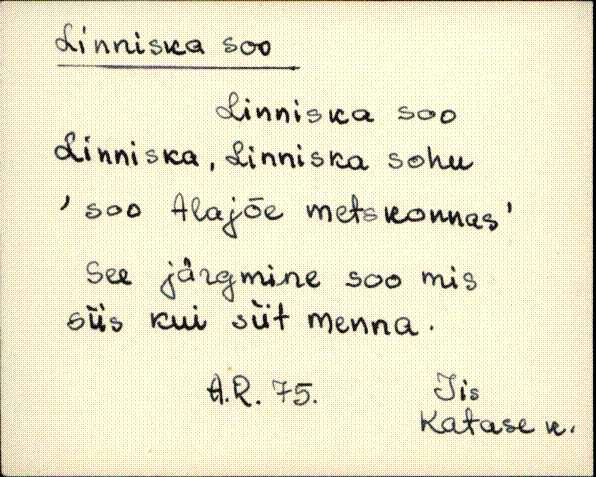 Linniska soo
Linniska soo
Linniska, Linniska sohu
'soo Alajõe metskonnas'
See järgmine soo mis
siis kui siit menna.
A.R. 75. Iis
Katase k.